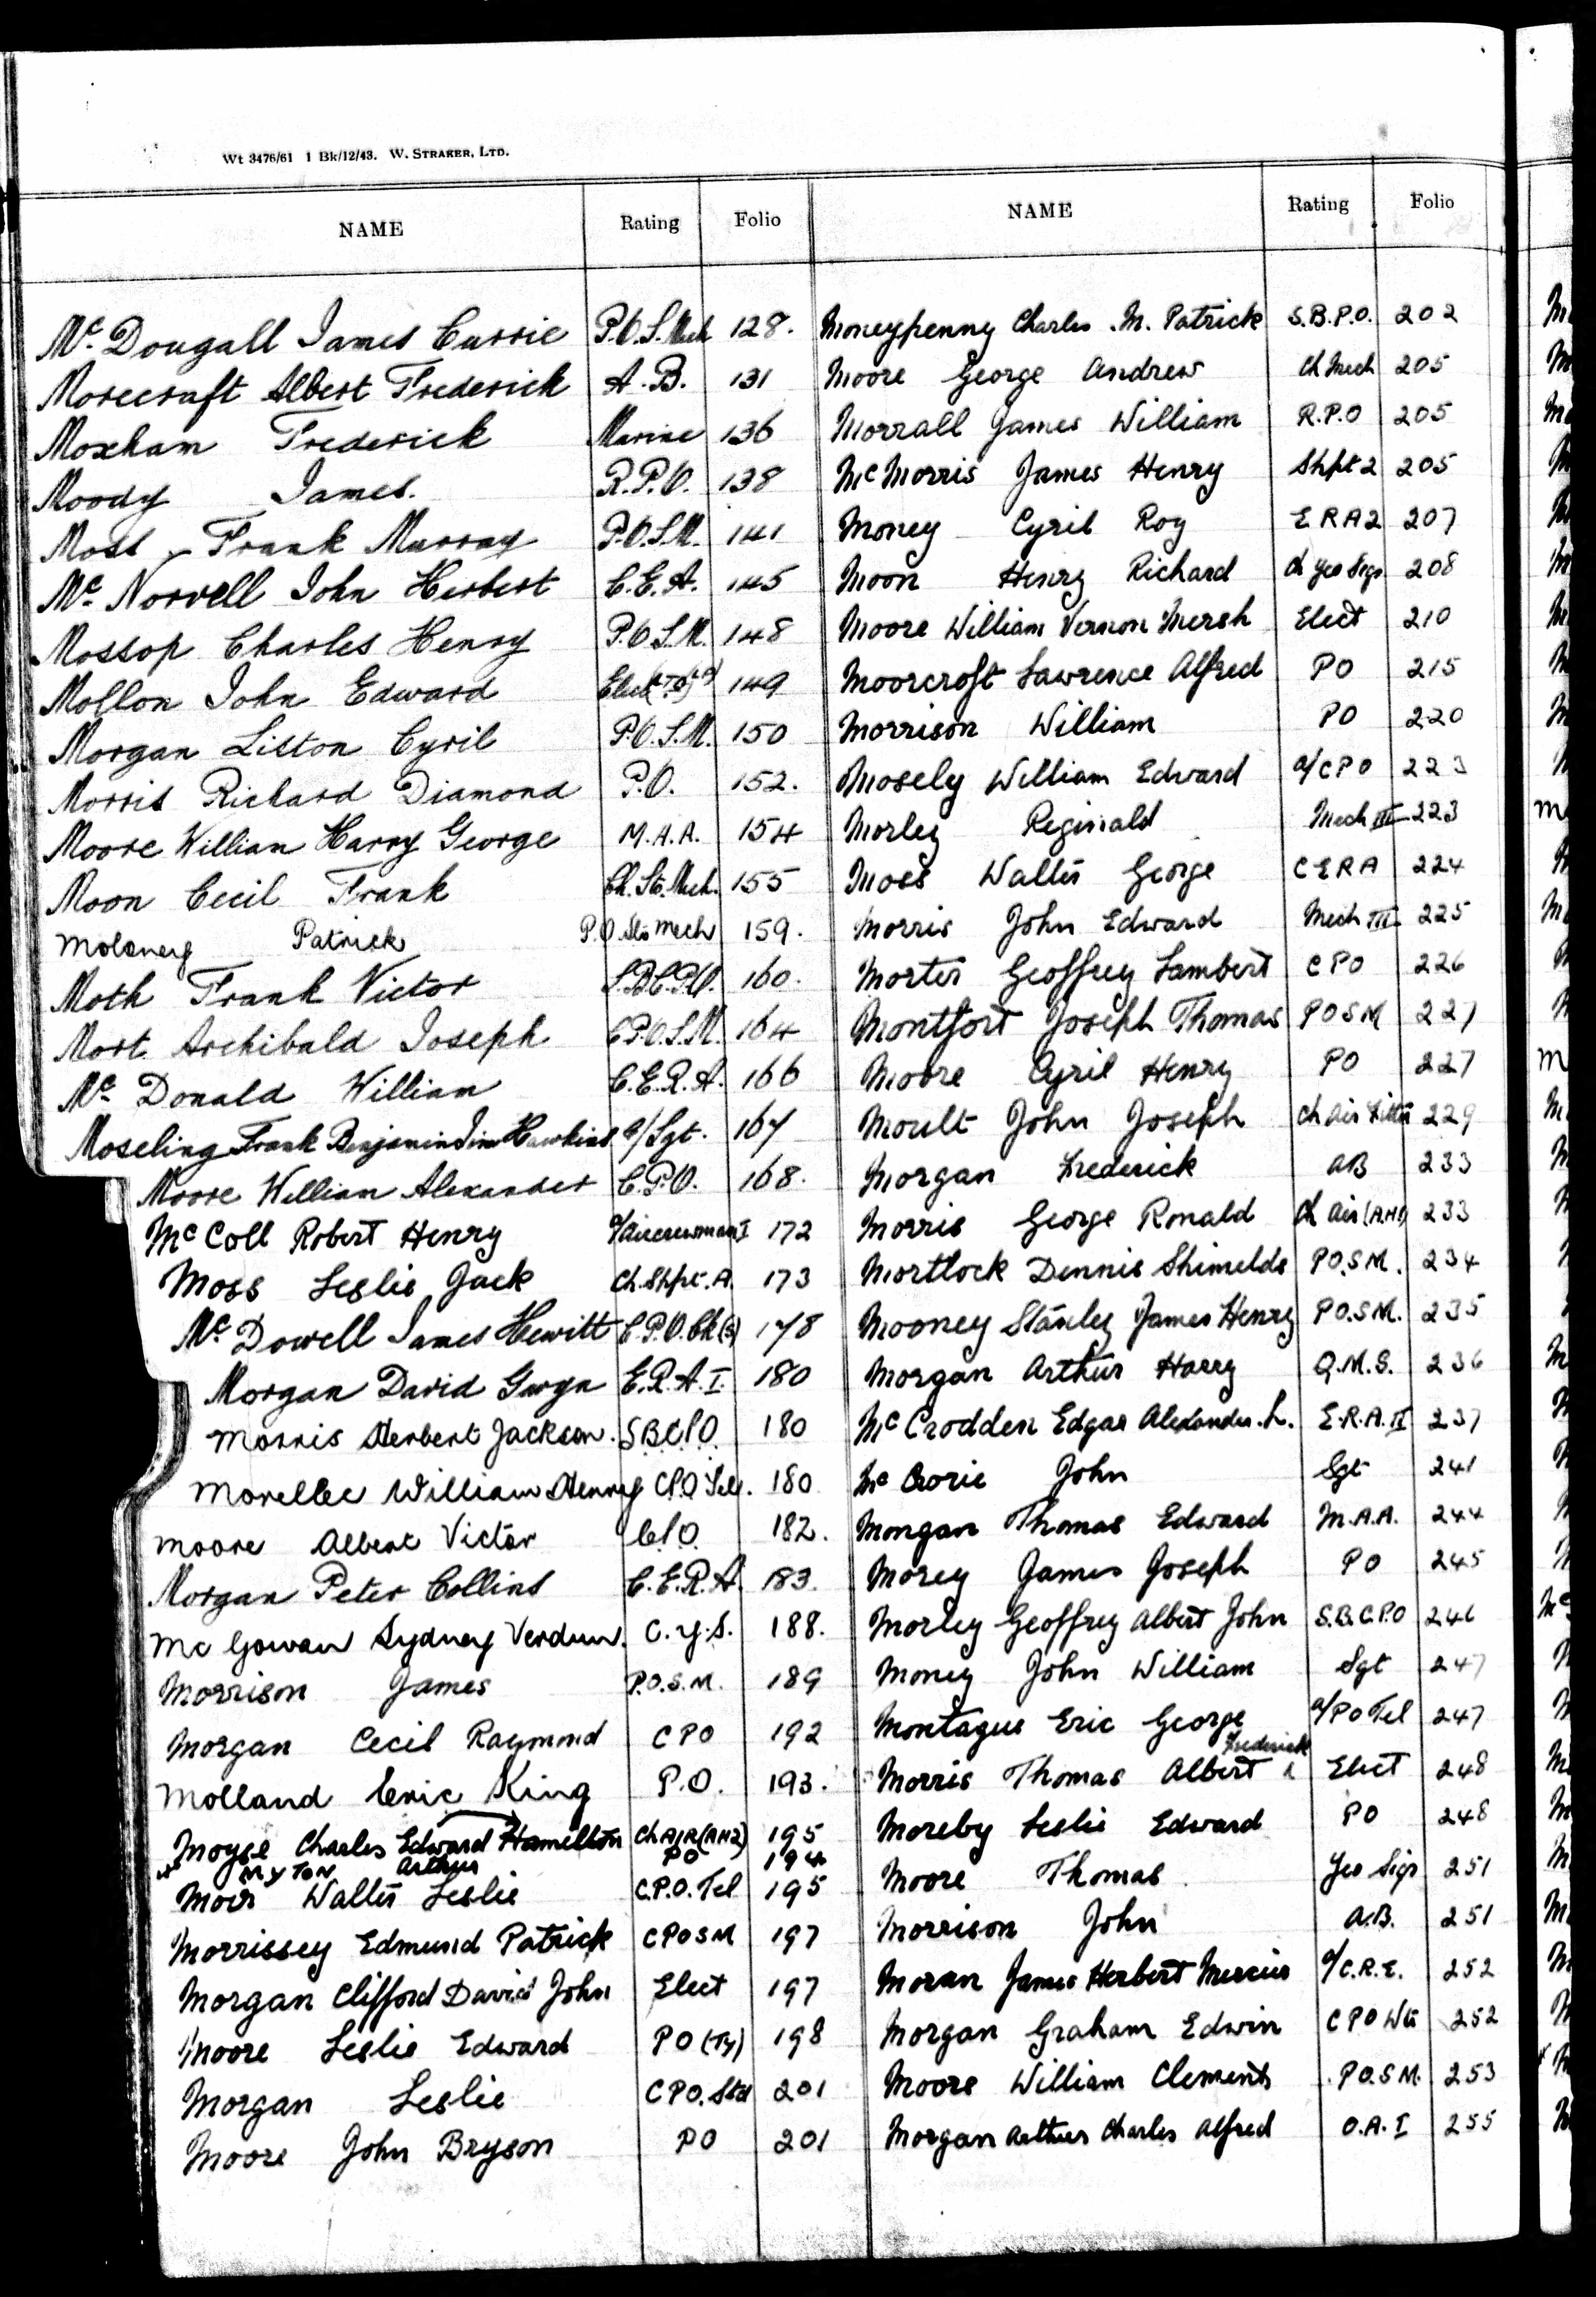 Wt 3476/61 1 Bk/12/43. W. STRAKER, LTD.
NAME Rating Folio
Mc Dougall James Currie P.O.S. Mech 128.
Morecraft Albert Frederick A.B. 131
Moxham Frederick Marine 136
Moody James. R.P.O. 138
Moss Frank Murray P.O.S.M. 141
Mc Norvell John Herbert C.E.A. 145
Mossop Charles Henry P.O.S.M. 148
Mollon John Edward Elect 149
Morgan Liston Cyril P.O.S.M. 150
Morris Richard Diamond P.O. 152.
Moore William Harry George M.A.A. 154
Moon Cecil Frank Ch. Sto. Mech. 155
Moloney Patrick P.O. Sto Mech 159.
Moth Frank Victor S.B.C.P.O. 160.
Mort Archibald Joseph C.P.O.S.M. 164
Mc Donald William C.E.R.A. 166
Moseling Frank Benjamin Jim Hawkins a/Sgt. 167
Moore William Alexander C.P.O. 168.
Mc Coll Robert Henry a/Aircrewman I 172
Moss Leslie Jack Ch. Shpt. A. 173
Mc Dowell James Hewitt C.P.O. Ck (s) 178
Morgan David Gwyn E.R.A. I. 180
Morris Herbert Jackson. S.B.C.P.O. 180
Morellec William Henry C.P.O Tel. 180
Moore Albert Victor C.P.O. 182.
Morgan Peter Collins C.E.R.A. 183.
Mc Gowan Sydney Verdun. C.Y.S. 188.
Morrison James P.O.S.M. 189
Morgan Cecil Raymond C P O 192
Molland Eric King P.O. 193.
Moyse Charles Edward Hamelton Ch AIR (AH2) 195
MYTON Arthur PO 194
Moir Walter Leslie C.P.O. Tel 195
Morrissey Edmund Patrick C P O S M 197
Morgan Clifford David John Elect 197
Moore Leslie Edward PO (Ty) 198
Morgan Leslie C P O. Std 201
Moore John Bryson P O 201
NAME Rating Folio
Moneypenny Charles .M. Patrick S.B.P.O. 202
Moore George Andrew Ch Mech 205
Morrall James William R.P.O 205
Mc Morris James Henry Shpt 2 205
Money Cyril Roy E R A 2 207
Moon Henry Richard Ch Yeo Sigs 208
Moore William Vernon Mersh Elect 210
Moorcroft Lawrence Alfred PO 215
Morrison William PO 220
Mosely William Edward a/C P O 223
Morley Reginald Mech III 223
Moss Walter George C E R A 224
Morris John Edward Mech III 225
Morter Geoffrey Lambert C P O 226
Montfort Joseph Thomas P O S M 227
Moore Cyril Henry PO 227
Moult John Joseph Ch Air Fitter 229
Morgan Frederick AB 233
Morris George Ronald Ch Air (A.H.1) 233
Mortlock Dennis Shimelds P.O.S.M. 234
Mooney Stanley James Henry P.O.S.M. 235
Morgan Arthur Harry Q.M.S. 236
Mc Crodden Edgar Alexander. L. E.R.A. II 237
Mc Crorie John Sgt 241
Mongan Thomas Edward M.A.A. 244
Morey James Joseph PO 245
Morley Geoffrey Albert John S.B.C.P.O 246
Money John William Sgt 247
Montague Eric George a/PO Tel 247
Frederick
Morris Thomas Albert Elect 248
Moreby Leslie Edward PO 248
Moore Thomas Yeo Sigs 251
Morrison John A.B. 251
Moran James Herbert Mercier a/C.R.E. 252
Morgan Graham Edwin C P O Wtr 252
Moore William Clements P.O.S.M. 253
Morgan Arthur Charles Alfred O.A. I 255